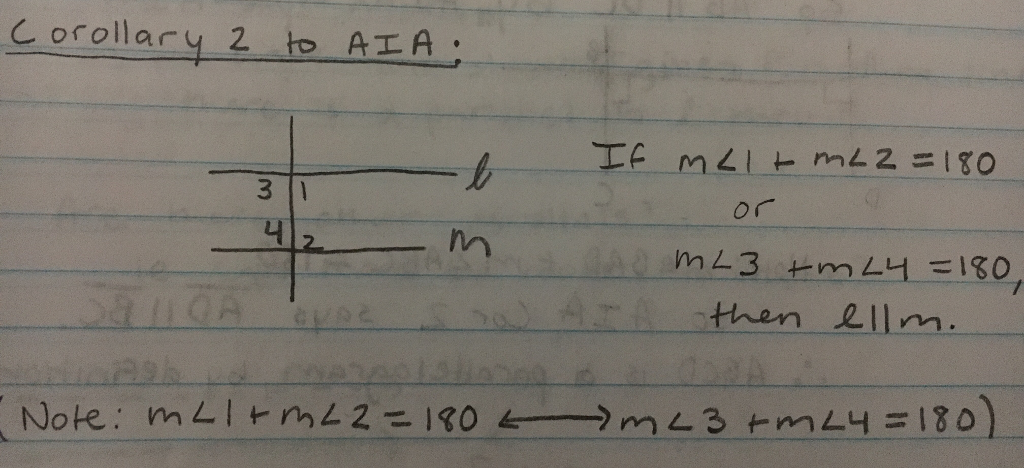 Corollary 2 to AIA:
l
3 1
4 2
m
If m∠1 + m∠2 = 180
or
m∠3 + m∠4 = 180,
then l||m.
(Note: m∠1 + m∠2 = 180 ⟷ m∠3 + m∠4 = 180)